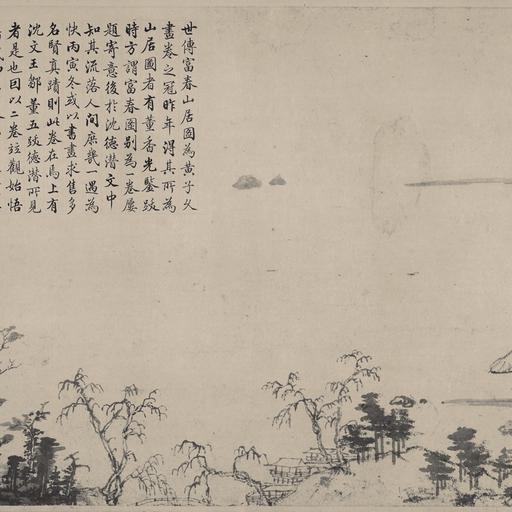 世傳富春山居圖為黃子久
畫卷之冠昨年得其所為
山居圖者有董香光鑒跋
時方謂富春圖別為一卷屢
題寄意後於沈德潛文中
知其流落人間庶幾一遇為
快丙寅冬或以書畫求售多
名賢真蹟則此卷在焉上有
沈文王鄒董五跋德潛所見
者是也因以二卷竝觀始悟